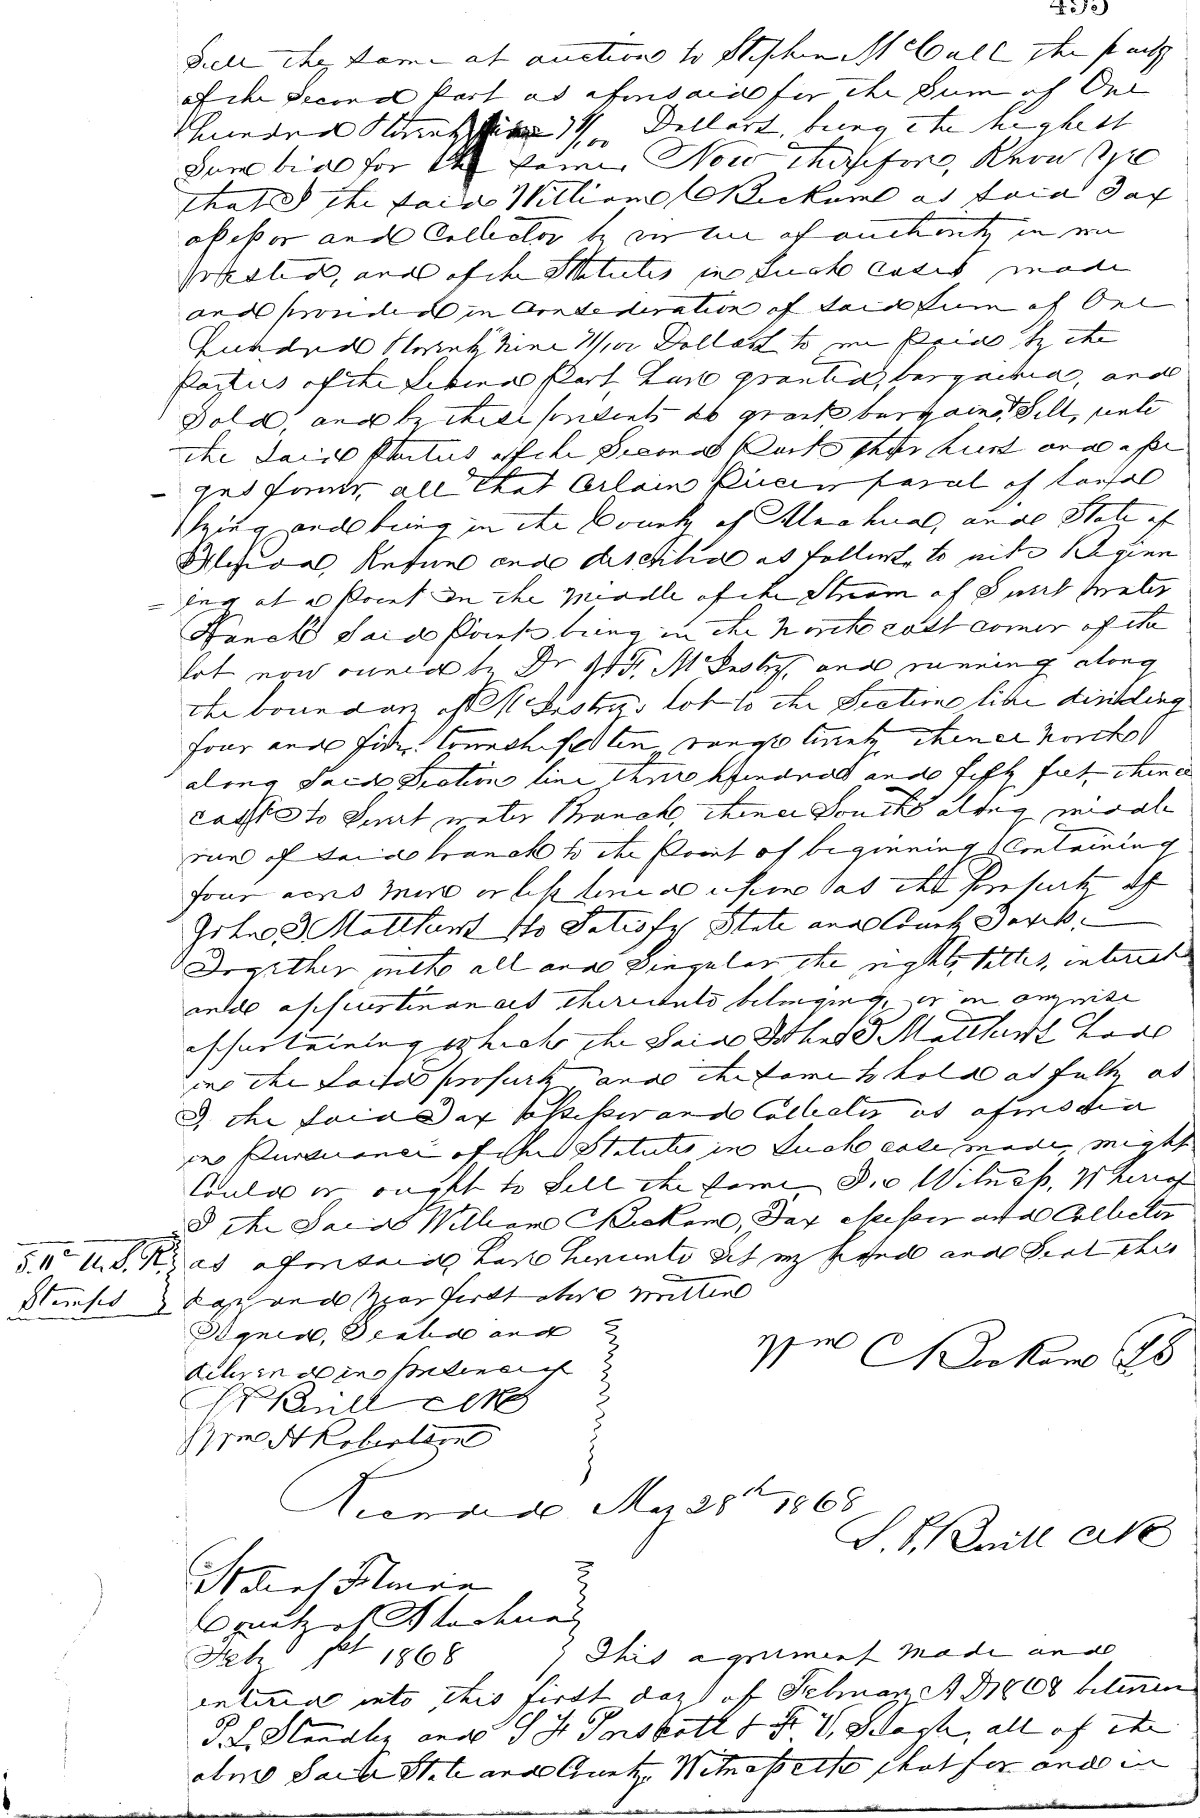 495
Sell the same at auction to Stephen McCall the party
of the Second Part as aforesaid for the Sum of One
hundred & twenty nine 71/100 Dollars, being the highest
Sum bid for the same. Now therefore, Know Ye
that I the said William C Beckum as said Tax
assessor and Collector by virtue of authority in me
vested, and of the Statutes in such cases made
and provided in Consideration of said sum of One
hundred & twenty Nine 71/100 Dollars to me Paid by the
Parties of the Second Part, have granted, bargained, and
Sold, and by these presents do grant bargain & Sell, unto
the said Parties of the Second Part their heirs and assi
- gns forever, all that Certain Piece or parcel of land
lying and being in the County of Alachua, and State of
Florida, Known and described as follows, to wit: Beginn
= ing at a Point in the Middle of the Stream of Sweet water
Branch Said Point being in the North east corner of the
lot now owned by Dr McInstry, and running along
the boundary of McInstrys lot to the Section line dividing
four and five. township ten range twenty thence North
along Said Section line three hundred and fifty feet, thence
east to Sweet water Branch, thence South along middle
run of said branch to the Point of beginning Containing
four acres more or less levied upon as the Property of
John S Matthews to Satisfy State and County Taxes.
Together with all and Singular the rights, titles, interest
and appurtinances thereunto belonging, or in anywise
appurtaining which the Said John S Matthews had
in the said property, and the same to hold as fully as
I, the said Tax assessor and Collector as aforesaid
in Pursuance of the Statutes in such case made, might
Could or ought to Sell the same. In Witness, Whereof
I the Said William C Beckum, Tax assessor and Collector
5.00 U.S.R. as aforesaid, have hereunto set my hand and Seal this
Stamps day and year first above written
Signed, Sealed and
delivered in presence of
Wm C Beckum LS
Clk
Wm H Robertson
Recorded May 28th 1868
Clk
State of Florida
County of Alachua
Feby 1st 1868 This agreement made and
entered into this first day of February A D 1868 between
P. L. Standley and S H Prescott & F. V. all of the
above Said State and County, Witnesseth that for and in